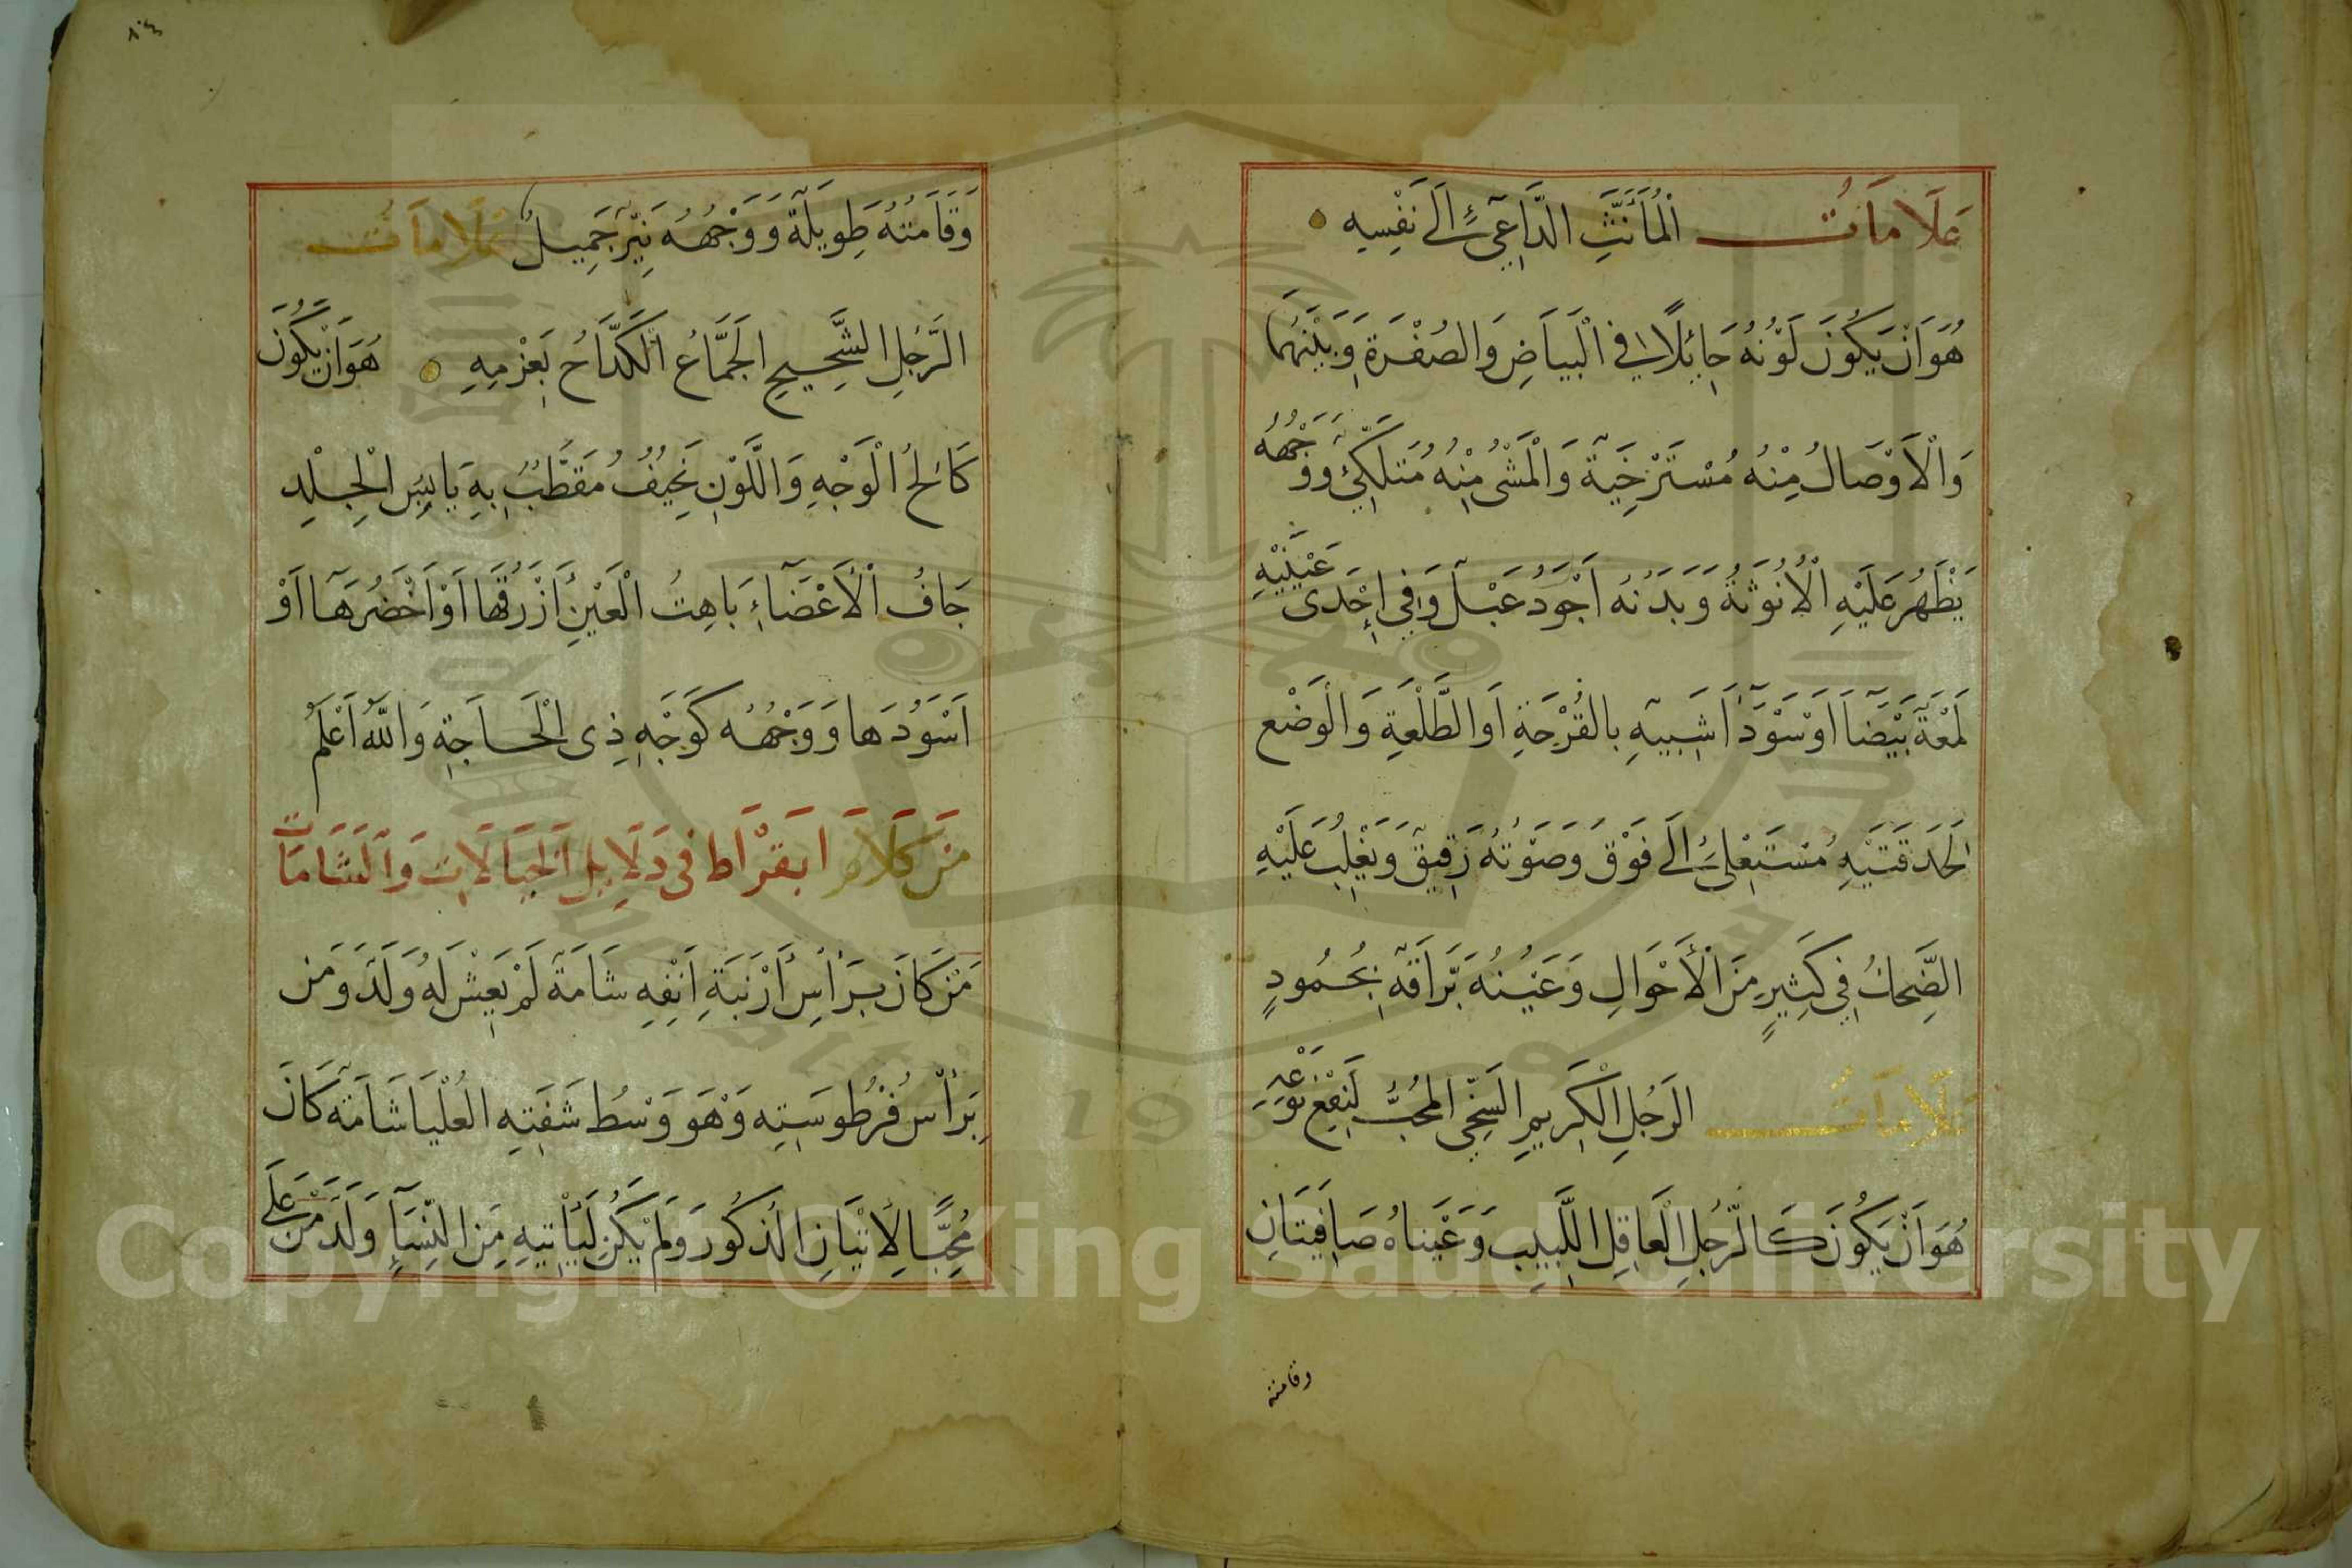 عَلَامَاتُ الْمُأَنَّثِ الدَّاعِي إِلَى نَفْسِهِ
هُوَ اَنْ يَكُونَ لَوْنُهُ حَائِلًا فِي الْبَيَاضِ وَالصُفْرَةِ وَبَيْنَهُمَا
وَالْاَوْصَالُ مِنْهُ مُسْتَرْخِيَةً وَالْمَشْىُ مِنْهُ مُتَلَكِّئٍ وَوَجْهُهُ
يَظْهَرُ عَلَيْهِ الْاُنُوثَةُ وَبَدَنُهُ اَجْوَدُ عَبْلٌ وَفِي اِحْدَى عَيْنَيْهِ
لَمْعَةٌ بَيْضَا اَوْ سَوْدَا شَبِيهِ بِالقُرْحَةِ اَو الطَّلْعَةِ وَالْوَضْعِ
الْحَدَقَتَيْهِ مُسْتَعْلِي اِلَى فَوْقَ وَصَوْتُهُ رَقِيقٌ وَيَغْلِبُ عَلَيْهِ
الضِّحْكُ فِي كَثِيرٍ مِنَ الْأَحْوَالِ وَعَيْنُهُ بَرَّاقَةٌ بِجُمُودٍ
عَلَامَاتُ الرَجُلِ الْكَرِيمِ السَخِّي الْمُحِبُّ لِنَفْعِ نَوْعِهِ
هُوَ اَنْ يَكُونَ كَالرَّجُلِ الْعَاقِلِ اللَّبِيبِ وَعَيْنَاهُ صَافِيَتَانِ
وقامته
٨٠٤
وَقَامَتُهُ طَوِيلَةٌ وَوَجْهُهُ نَيِّرٌ جَمِيلٌ عَلَامَاتُ
الرَّجُلِ الشَّحِيحِ الْجَمَّاعُ الْكَدَّاحُ بِعَزْمِهِ هُوَ اَنْ يَكُونَ
كَالِحُ الْوَجْهِ وَاللَّوْنِ نَحِيفُ مُقَطَّبُ بِهِ يَابِسُ الْجِلْدِ
جَافُ الْأَعْضَاءِ بَاهِتُ الْعَيْنِ أَزْرَقُهَا اَوْ اَخْضَرُهَا اَوْ
اَسْوَدُهَا وَوَجْهُهُ كَوَجْهِ ذِى الْحَاجَةِ وَاللهُ اَعْلَمُ
مِنْ كَلَامِ ابَقْرَاط فِى دَلَايِلِ الْخِيَالَاتِ وَالشَامَاتِ
مَنْ كَانَ بِرَأْسِ أَرْنَبَةِ اَنْفِهِ شَامَةٌ لَمْ يَعِشْ لَهُ وَلَدٌ وَمَن
بِرَأْسِ فُرْطُوسَتِهِ وَهْوَ وَسْطُ شَفَتِهِ الْعُلْيَا شَامَةٌ كَانَ
مُحِبًّا لِاتْيَانِ الذكُورَ وَلَمْ يَكُنْ لِيَأْتِيهِ مِنَ النِّسَاءِ وَلَدٌ مَنْ عَلَى
Copyright © King Saud University